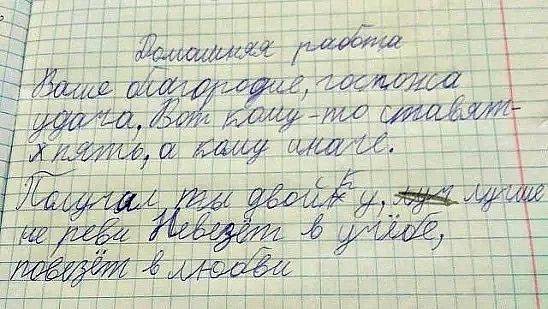 Домашняя работа
Ваше благородие, госпожа
удача, Вот кому-то ставят-
х пять, а кому иначе.
Получал ты двойку, лучше
не реви Невезёт в учёбе,
повезёт в любви